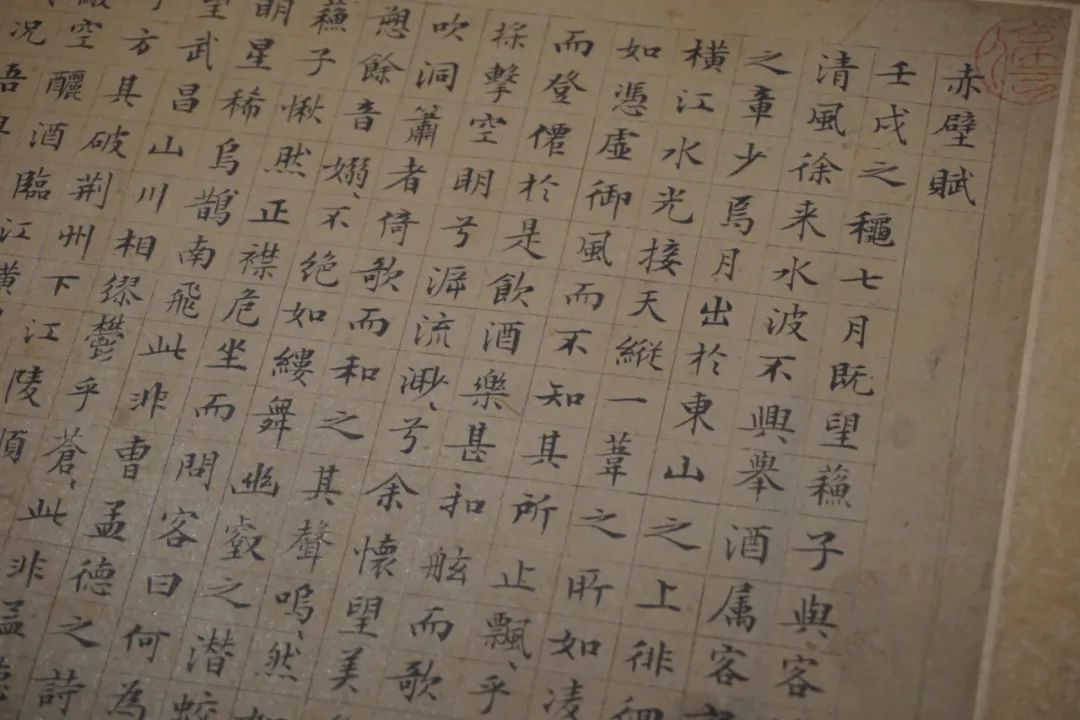 赤壁賦
壬戌之穐七月既望蘓子與客
清風徐来水波不興舉酒属客
之章少焉月出於東山之上徘徊
横江水光接天縱一葦之所如凌
如憑虛御風而不知其所止飄、乎
而登僊於是飲酒樂甚扣舷而歌
採擊空明兮泝流渺、兮余懷望美
吹洞簫者倚歌而和之其聲嗚、然
愬餘音嫋、不絶如縷舞幽壑之潜蛟
蘓子愀然正襟危坐而問客曰何為
明星稀烏鵲南飛此非曹孟德之詩
望武昌山川相繆鬱乎蒼、此非孟德
方其破荆州下江陵順
空釃酒臨江横
况吾